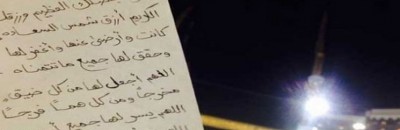 العظيم ورزقك
الكريم أرزق شمس السعادة
كانت وأرضى عنها وأغفر لها
وحقق لها جميع ما تتمناه
اللهم أجعل لها من كل ضيق
مخرجاً ومن كل هماً فرجاً
اللهم يسر لها جميع